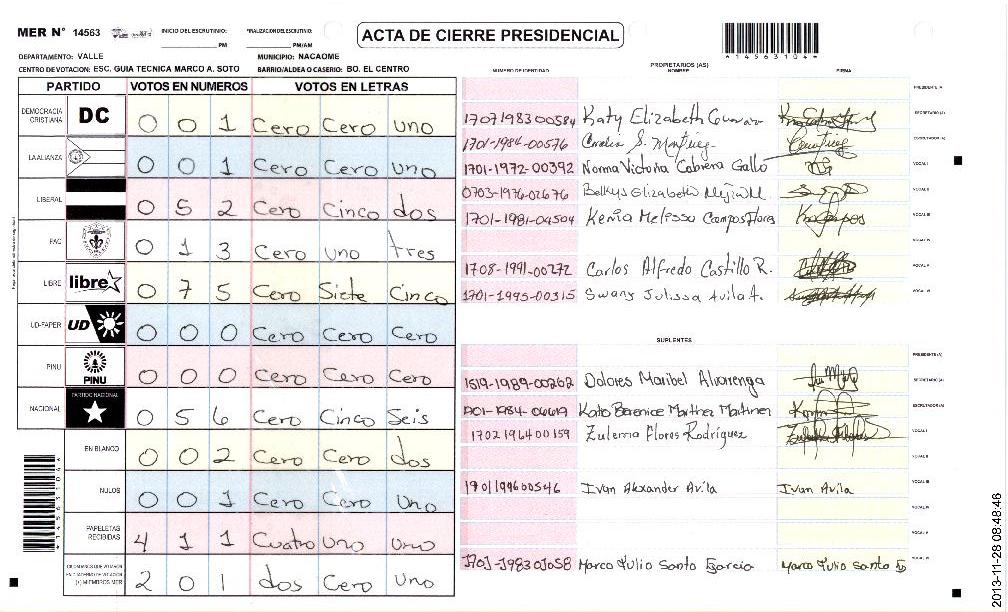 MER N° 14563 INICIO DEL ESCRUTINIO: FINALIZACION DEL ESCRUTINIO: ACTA DE CIERRE PRESIDENCIAL
PM PM/AM *14563104*
DEPARTAMENTO: VALLE MUNICIPIO: NACAOME
CENTRO DE VOTACION: ESC. GUIA TECNICA MARCO A. SOTO BARRIO/ALDEA O CASERIO: BO. EL CENTRO
PARTIDO VOTOS EN NUMEROS VOTOS EN LETRAS
DEMOCRACIA CRISTIANA DC 0 0 1 Cero Cero uno
LA ALIANZA 0 0 1 Cero Cero Uno
LIBERAL 0 5 2 Cero Cinco dos
PAC 0 1 3 Cero uno tres
LIBRE libre 0 7 5 Cero Siete Cinco
UD-FAPER UD 0 0 0 Cero Cero Cero
PINU PINU 0 0 0 Cero Cero Cero
NACIONAL PARTIDO NACIONAL 0 5 6 Cero Cinco Seis
EN BLANCO 0 0 2 Cero Cero dos
NULOS 0 0 1 Cero Cero Uno
PAPELETAS RECIBIDAS 4 1 1 Cuatro Uno Uno
CIUDADANOS QUE VOTARON EN CUADERNO DE VOTACION (+) MIEMBROS MER 2 0 1 dos Cero Uno
PROPIETARIOS (AS)
NUMERO DE IDENTIDAD NOMBRE FIRMA
PRESIDENTE (A)
1707198300584 Katy Elizabeth SECRETARIO (A)
1701-1984-00576 S. Martinez ESCRUTADOR (A)
1701-1972-00392 Norma Victoria Cabrera Gallo VOCAL I
0703-1976-02676 Belkys Elizabeth VOCAL II
1701-1981-04504 Kenia Melissa Campos Flores VOCAL III
VOCAL IV
1708-1991-00272 Carlos Alfredo Castillo R. VOCAL V
1701-1995-00315 Swany Julissa Avila A. VOCAL VI
SUPLENTES
PRESIDENTE (A)
1519-1989-00262 Dolores Maribel Alvarenga SECRETARIO (A)
1701-1984-00619 Berenice Martinez Martinez ESCRUTADOR (A)
1702196400159 Zulema Flores Rodríguez VOCAL I
VOCAL II
1701199600546 Ivan Alexander Avila Ivan Avila VOCAL III
VOCAL IV
VOCAL V
1701-198301058 Marco Tulio Santo Garcia Marco Tulio Santo G VOCAL VI
*14563104*
2013-11-28 08:48:46